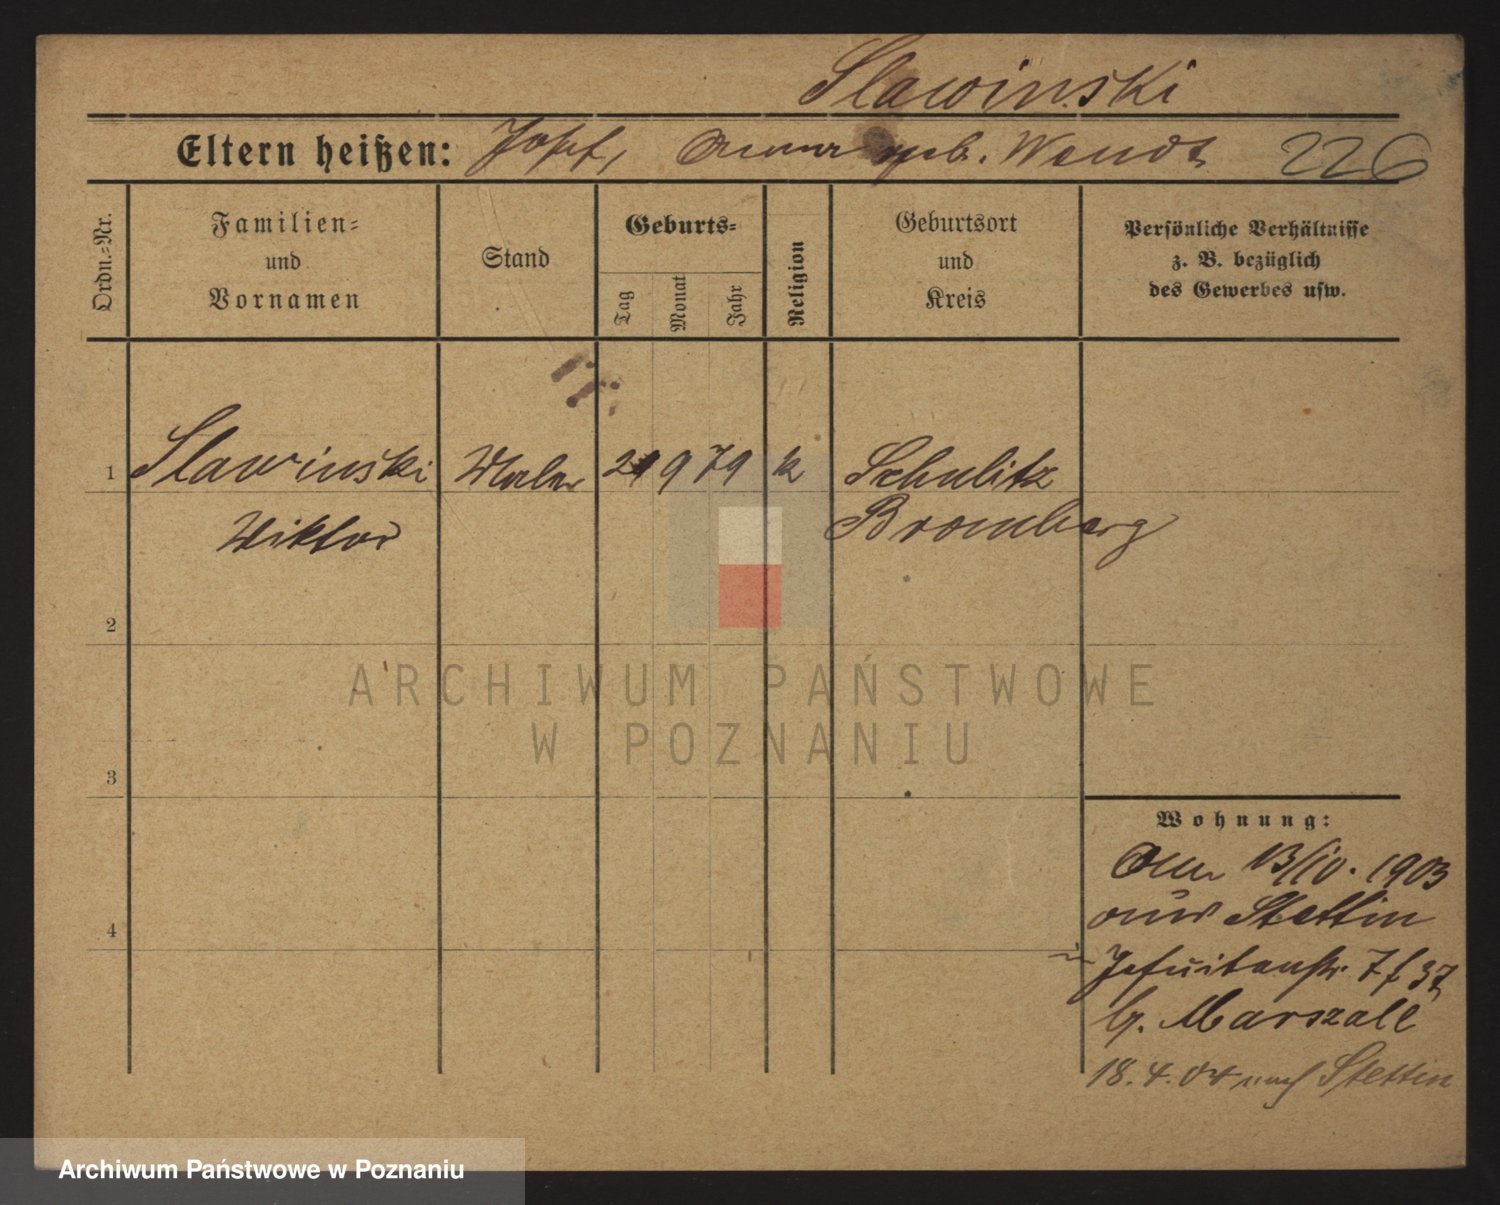 Slawinski
Eltern heißen: Josef, Anna geb. Wendt 226
Ordn.-Nr.
Familien-
und
Vornamen
Stand
Geburts-
Tag
Monat
Jahr
Religion
Geburtsort
und
Kreis
Persönliche Verhältnisse
z. B. bezüglich
des Gewerbes usw.
1 Slawinski Maler 9 79 k Schulitz
Viktor Bromberg
2
3
4
ARCHIWUM PAŃSTWOWE
W POZNANIU
Wohnung:
Am 13/10. 1903
aus Stettin
in Jesuitenstr. 7
b. Marszall
18. 4. 04 nach Stettin
Archiwum Państwowe w Poznaniu